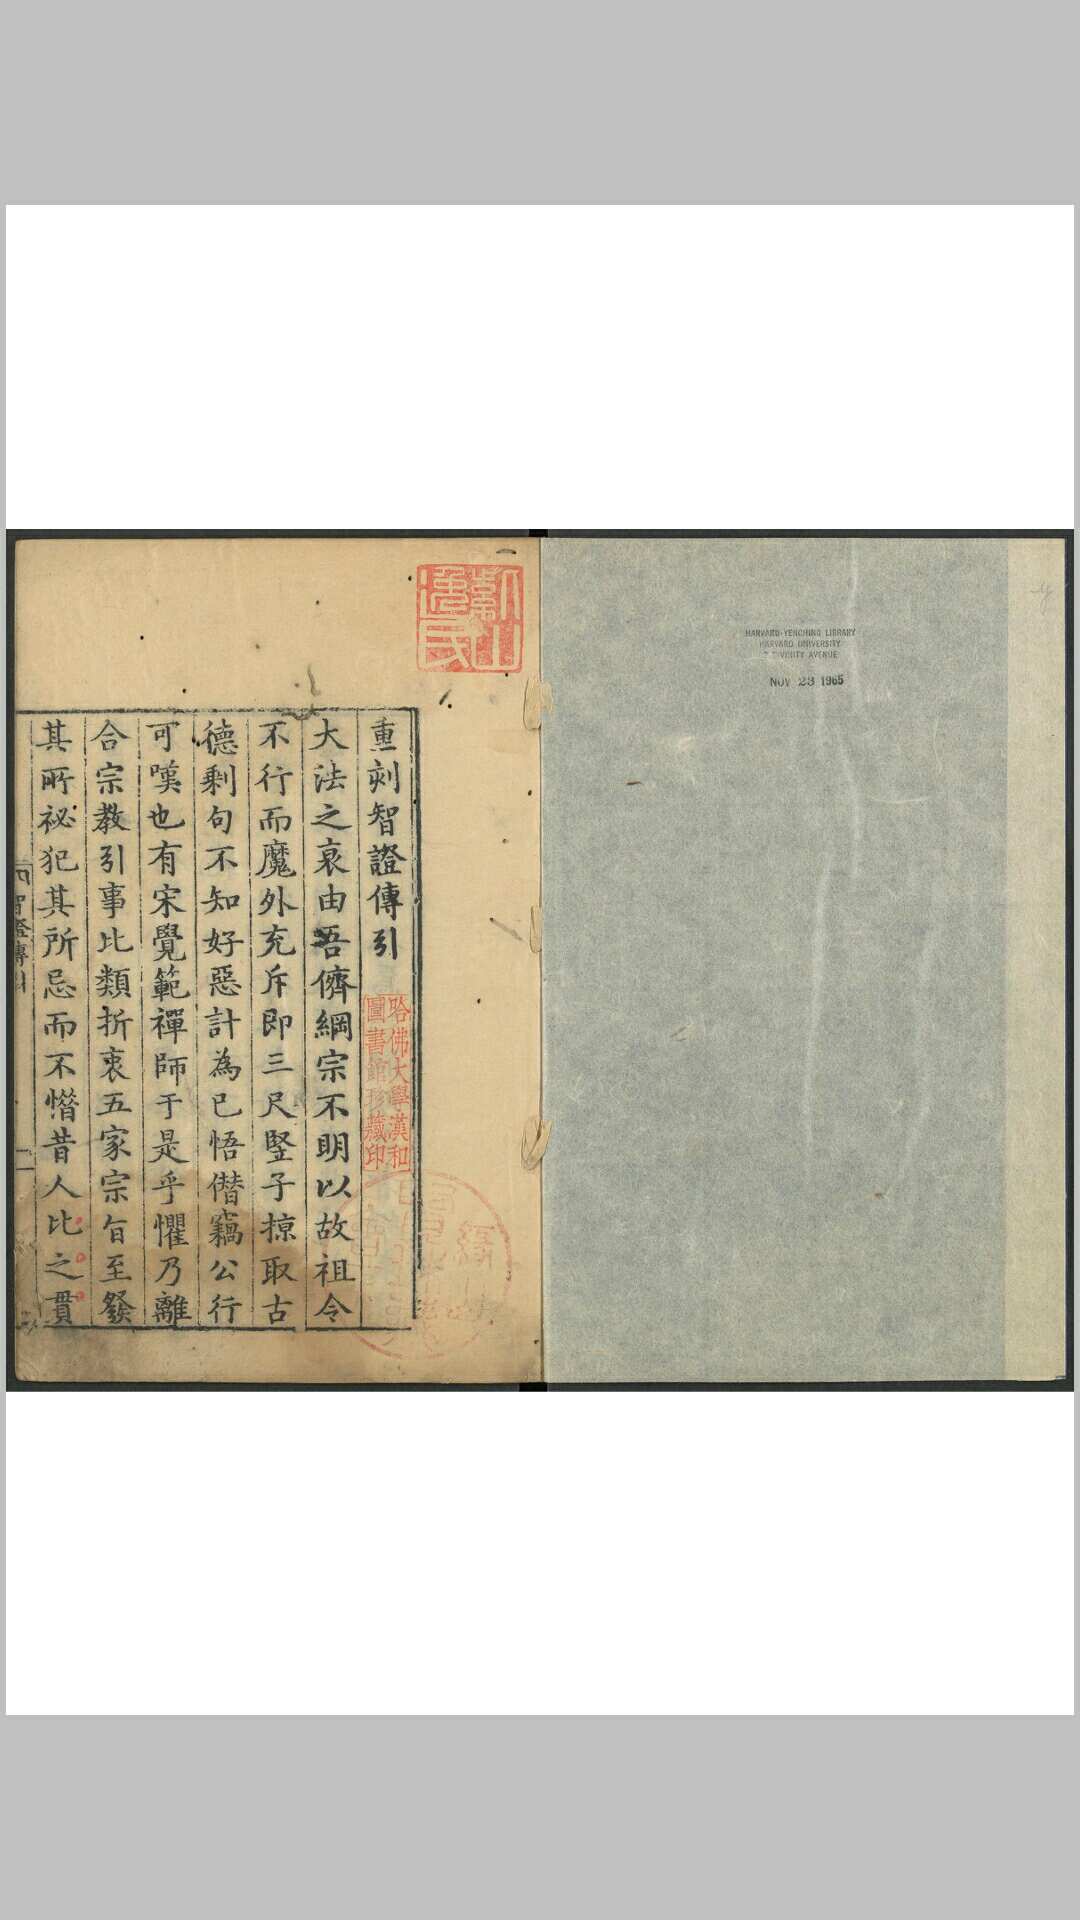 HARVARD-YENCHING LIBRARY
HARVARD UNIVERSITY
AVENUE
NOV 23 1965
重刻智證傳引
大法之衰由吾儕綱宗不明以故祖令
不行而魔外充斥即三尺竪子掠取古
德剩句不知好惡計為已悟僭竊公行
可嘆也有宋覺範禪師于是乎懼乃離
合宗教引事比類折衷五家宗旨至發
其所祕犯其所忌而不惜昔人比之貫
哈佛大學漢和
圖書館珍藏印
智證傳引
一